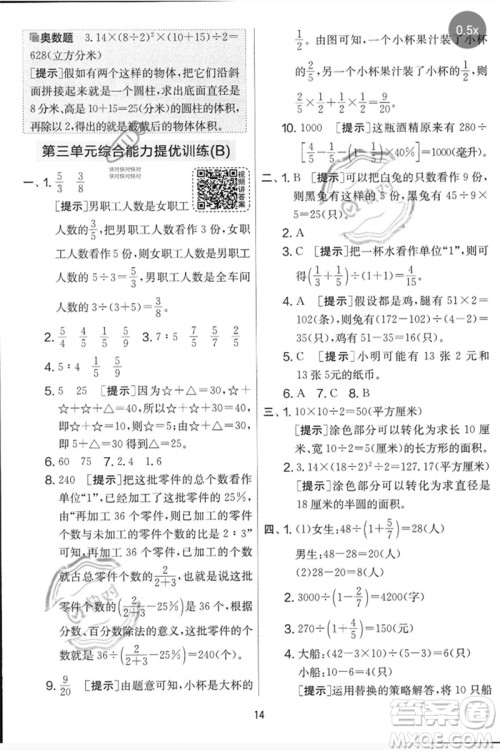 奥数题 3.14×(8÷2)²×(10+15)÷2=
628(立方分米)
[提示]假如有两个这样的物体,把它们沿斜
面拼接起来就是一个圆柱,求出底面直径是
8分米,高10+15=25(分米)的圆柱的体积,
再除以2,就是现在的物体的体积。
第三单元综合能力提优训练(B)
快对快对快对
快对快对快对
视频讲答案
一、1. 5/3 3/8
[提示]男职工人数是女职工
人数的3/5,把男职工人数看作3份,女职工
人数看作5份,则女职工人数是男职工
人数的5÷3=5/3,男职工人数是全车间
人数的3÷(3+5)=3/8。
2. 5/4 4/5 1/4 1/5 3. 7∶5 7/5 2/5
4. 5∶4 4/9 5/9
5. 5 25 [提示]因为☆+△=30,所以
☆+☆+☆+△=☆+☆+30=40,所以
☆+☆=10,所以☆=5,所以5+△=30,
所以△=25。
6. 60 75 7. 2.4 1.6
8. 210 [提示]把这批零件的总个数看作
单位“1”,已经加工了零件总个数的25%,
由“再加工36个零件,已加工的零件个
数与未加工的零件个数的比是2∶3”可
知,再加工36个零件,已加工的零件个数
就占总零件个数的2/(2+3),即36个占这批
零件个数的2/(2+3)-25%,根据分数除法
的意义,用除法计算,这批零件有36÷
(2/(2+3)-25%)=240(个)。
9. 9/20 [提示]由题意可知,小杯是大杯的
1/2。由图可知,一个小杯果汁装了小杯的
1/2,一个大杯果汁装了大杯的1/5,则1/5+
1/2×1/2=9/20。
10. 1000 [提示]这瓶酒精原有300÷
(1-2/5-30%)=1000(毫升)。
二、1. C [提示]可以把白兔的只数看作9
份,灰兔的只数看作5份,则灰兔有45÷9×
5=25(只)。
2. A
3. C [提示]把一杯水看作单位“1”,则喝
了(1/3+1/5)÷2=4/15。
4. A [提示]假设都是鸡,腿有51×2=102
(条),则兔有(172-102)÷(4-2)=
35(只),鸡有51-35=16(只)。
5. C [提示]小明可能有13张2元和
13张5元的纸币。
6. B 7. A 8. B
三、1. 10×10÷2=50(平方厘米)
[提示]涂色部分可以转化为一个底是
10厘米、高是10厘米的三角形的面积。
2. 3.14×(18÷2)²÷2=127.17(平方厘米)
[提示]涂色部分可以转化为一个直径是
18厘米的半圆的面积。
四、1. (1)女生:48÷(1+5/7)=28(人)
男生:48-28=20(人)
(2)28-20=8(人)
2. 3000÷(1-2/7)=4200(字)
3. 270÷(1+4/5)=150(元)
4. 大船:(42-2×10)÷(4-2)=11(只)
小船:10+11=21(只)
[提示]运用转换的策略解答,将10只船
14
0.5x